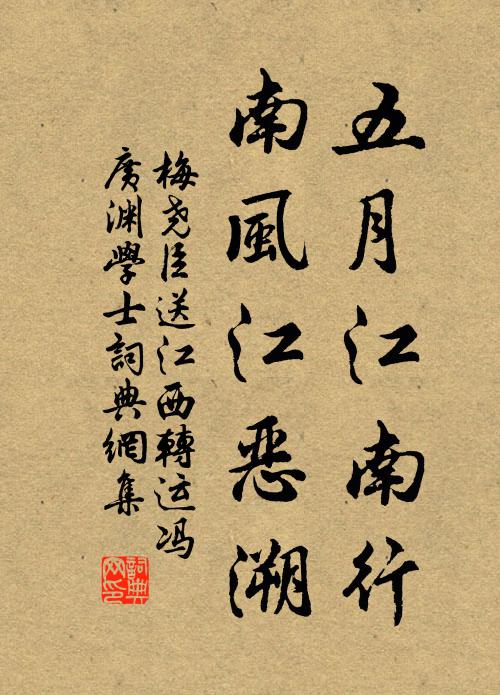 五月江南行
南風江惡溯
梅尧臣送江西轉运冯
廣渊學士詞典網集
詞典網印